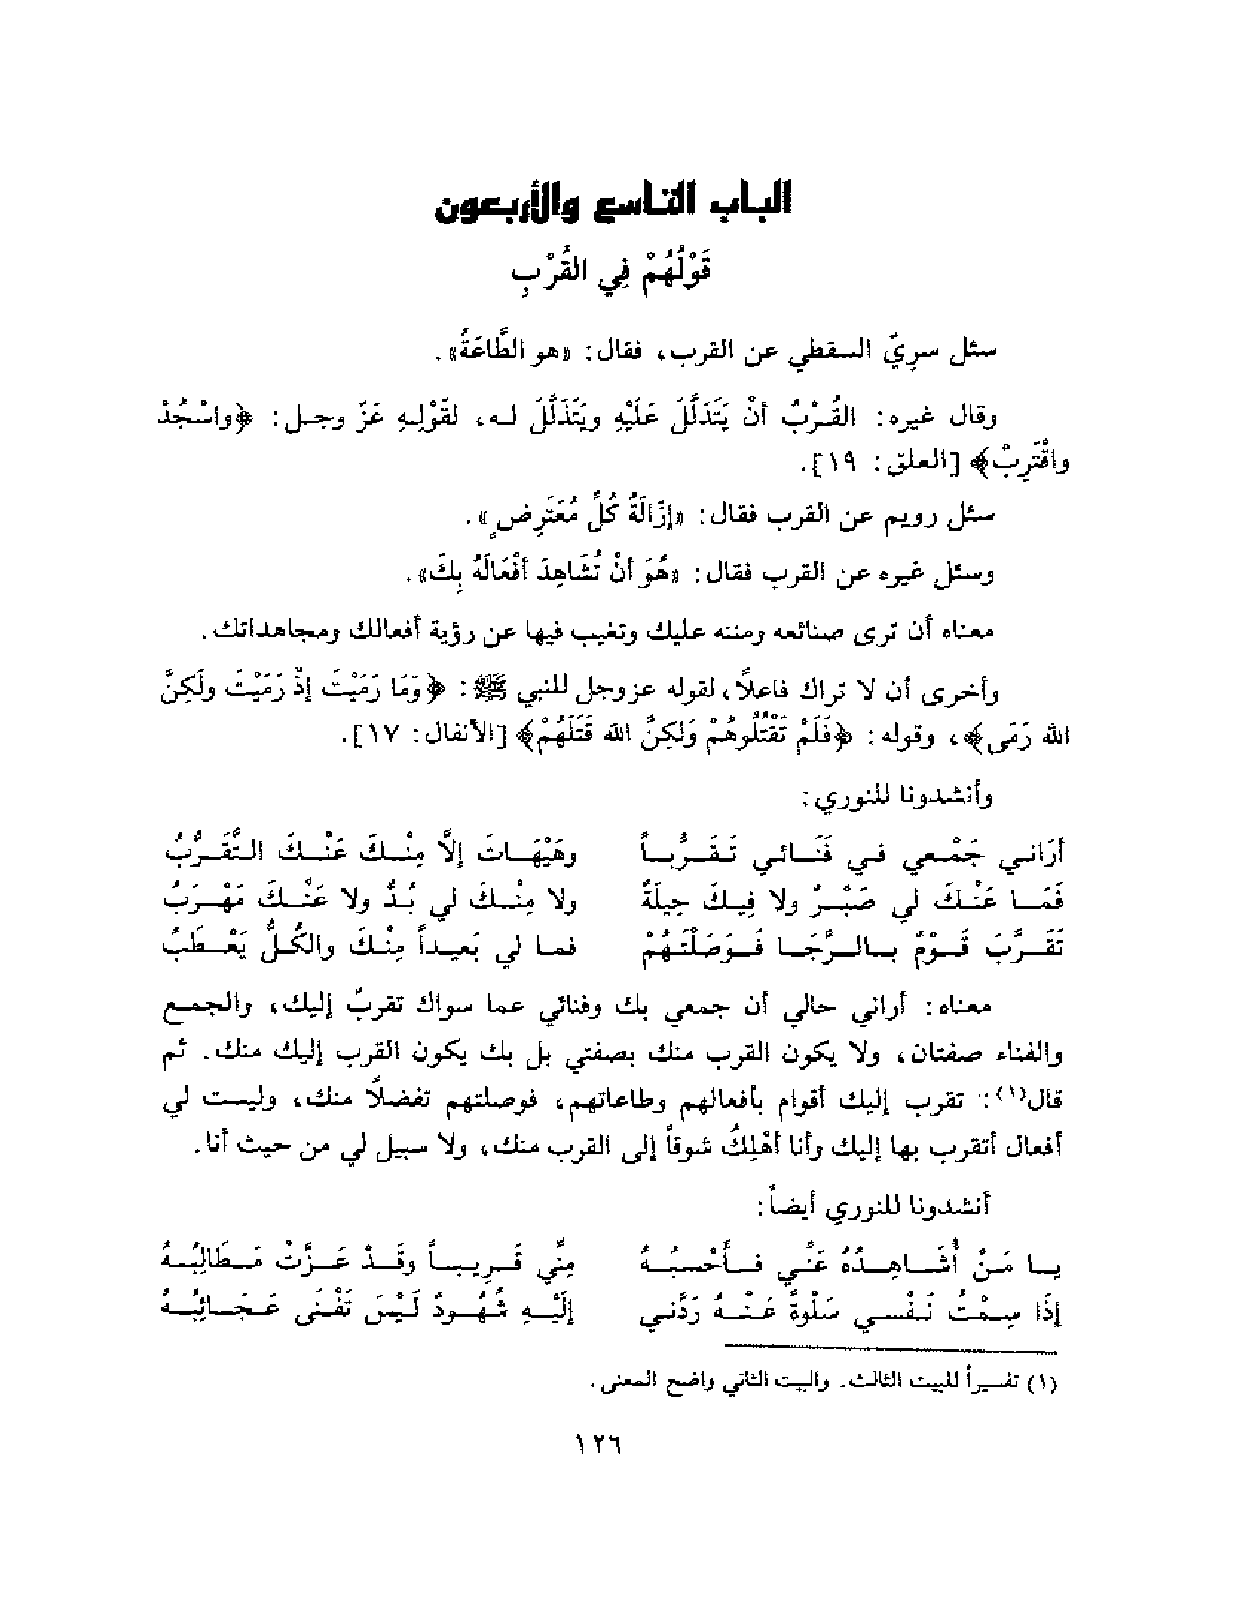 الباب التاسع والأربعون
قَوْلُهُمْ فِي القُرْبِ
سئل سريّ السقطي عن القرب، فقال: «هو الطَّاعَةُ».
وقال غيره: القُرْبُ أنْ يَتَدَلَّلَ عَلَيْهِ ويَتَذَلَّلَ له، لقَوْلِهِ عَزّ وجل: ﴿واسْجُدْ
واقْتَرِبْ﴾ [العلق: ١٩].
سئل رويم عن القرب فقال: «إزَالَةُ كُلِّ مُعْتَرِضٍ».
وسئل غيره عن القرب فقال: «هُوَ أنْ تُشَاهِدَ أفْعَالَهُ بِكَ».
معناه أن ترى صنائعه ومننه عليك وتغيب فيها عن رؤية أفعالك ومجاهداتك.
وأخرى أن لا تراك فاعلاً، لقوله عزوجل للنبي ﷺ: ﴿وَمَا رَمَيْتَ إذْ رَمَيْتَ ولَكِنَّ
الله رَمَى﴾، وقوله: ﴿فَلَمْ تَقْتُلُوهُمْ وَلكِنَّ الله قَتَلَهُمْ﴾ [الأنفال: ١٧].
وأنشدونا للنوري:
أرَاني جَمْعي في فَنَائي تَقَرُّباً وهَيْهَاتَ إلَّا مِنْكَ عَنْكَ التَّقَرُّبُ
فَمَا عَنْكَ لي صَبْرٌ ولا فِيكَ حِيلَةٌ ولا مِنْكَ لي بُدٌّ ولا عَنْكَ مَهْرَبُ
تَقَرَّبَ قَوْمٌ بالرَّجَا فَوَصَلْتَهُمْ فما لي بَعيداً مِنْكَ والكُلُّ يَعْطَبُ
معناه: أراني حالي أن جمعي بك وفنائي عما سواك تقربٌ إليك، والجمع
والفناء صفتان، ولا يكون القرب منك بصفتي بل بك يكون القرب إليك منك. ثم
قال(١): تقرب إليك أقوام بأفعالهم وطاعاتهم، فوصلتهم تفضلاً منك، وليست لي
أفعال أتقرب بها إليك وأنا أهْلِكُ شوقاً إلى القرب منك، ولا سبيل لي من حيث أنا.
أنشدونا للنوري أيضاً:
يا مَنْ أُشَاهِدُهُ عَنِّي فأَحْسبُهُ مِنِّي قَرِيباً وقَدْ عَزَّتْ مَطَالِبُهُ
إذَا سِمْتُ نَفْسي سَلْوةً عَنْهُ رَدَّني إلَيْهِ شُهُودٌ لَيْسَ تَفْنَى عَجَائِبُهُ
(١) تفسيراً للبيت الثالث. والبيت الثاني واضح المعنى.
١٢٦